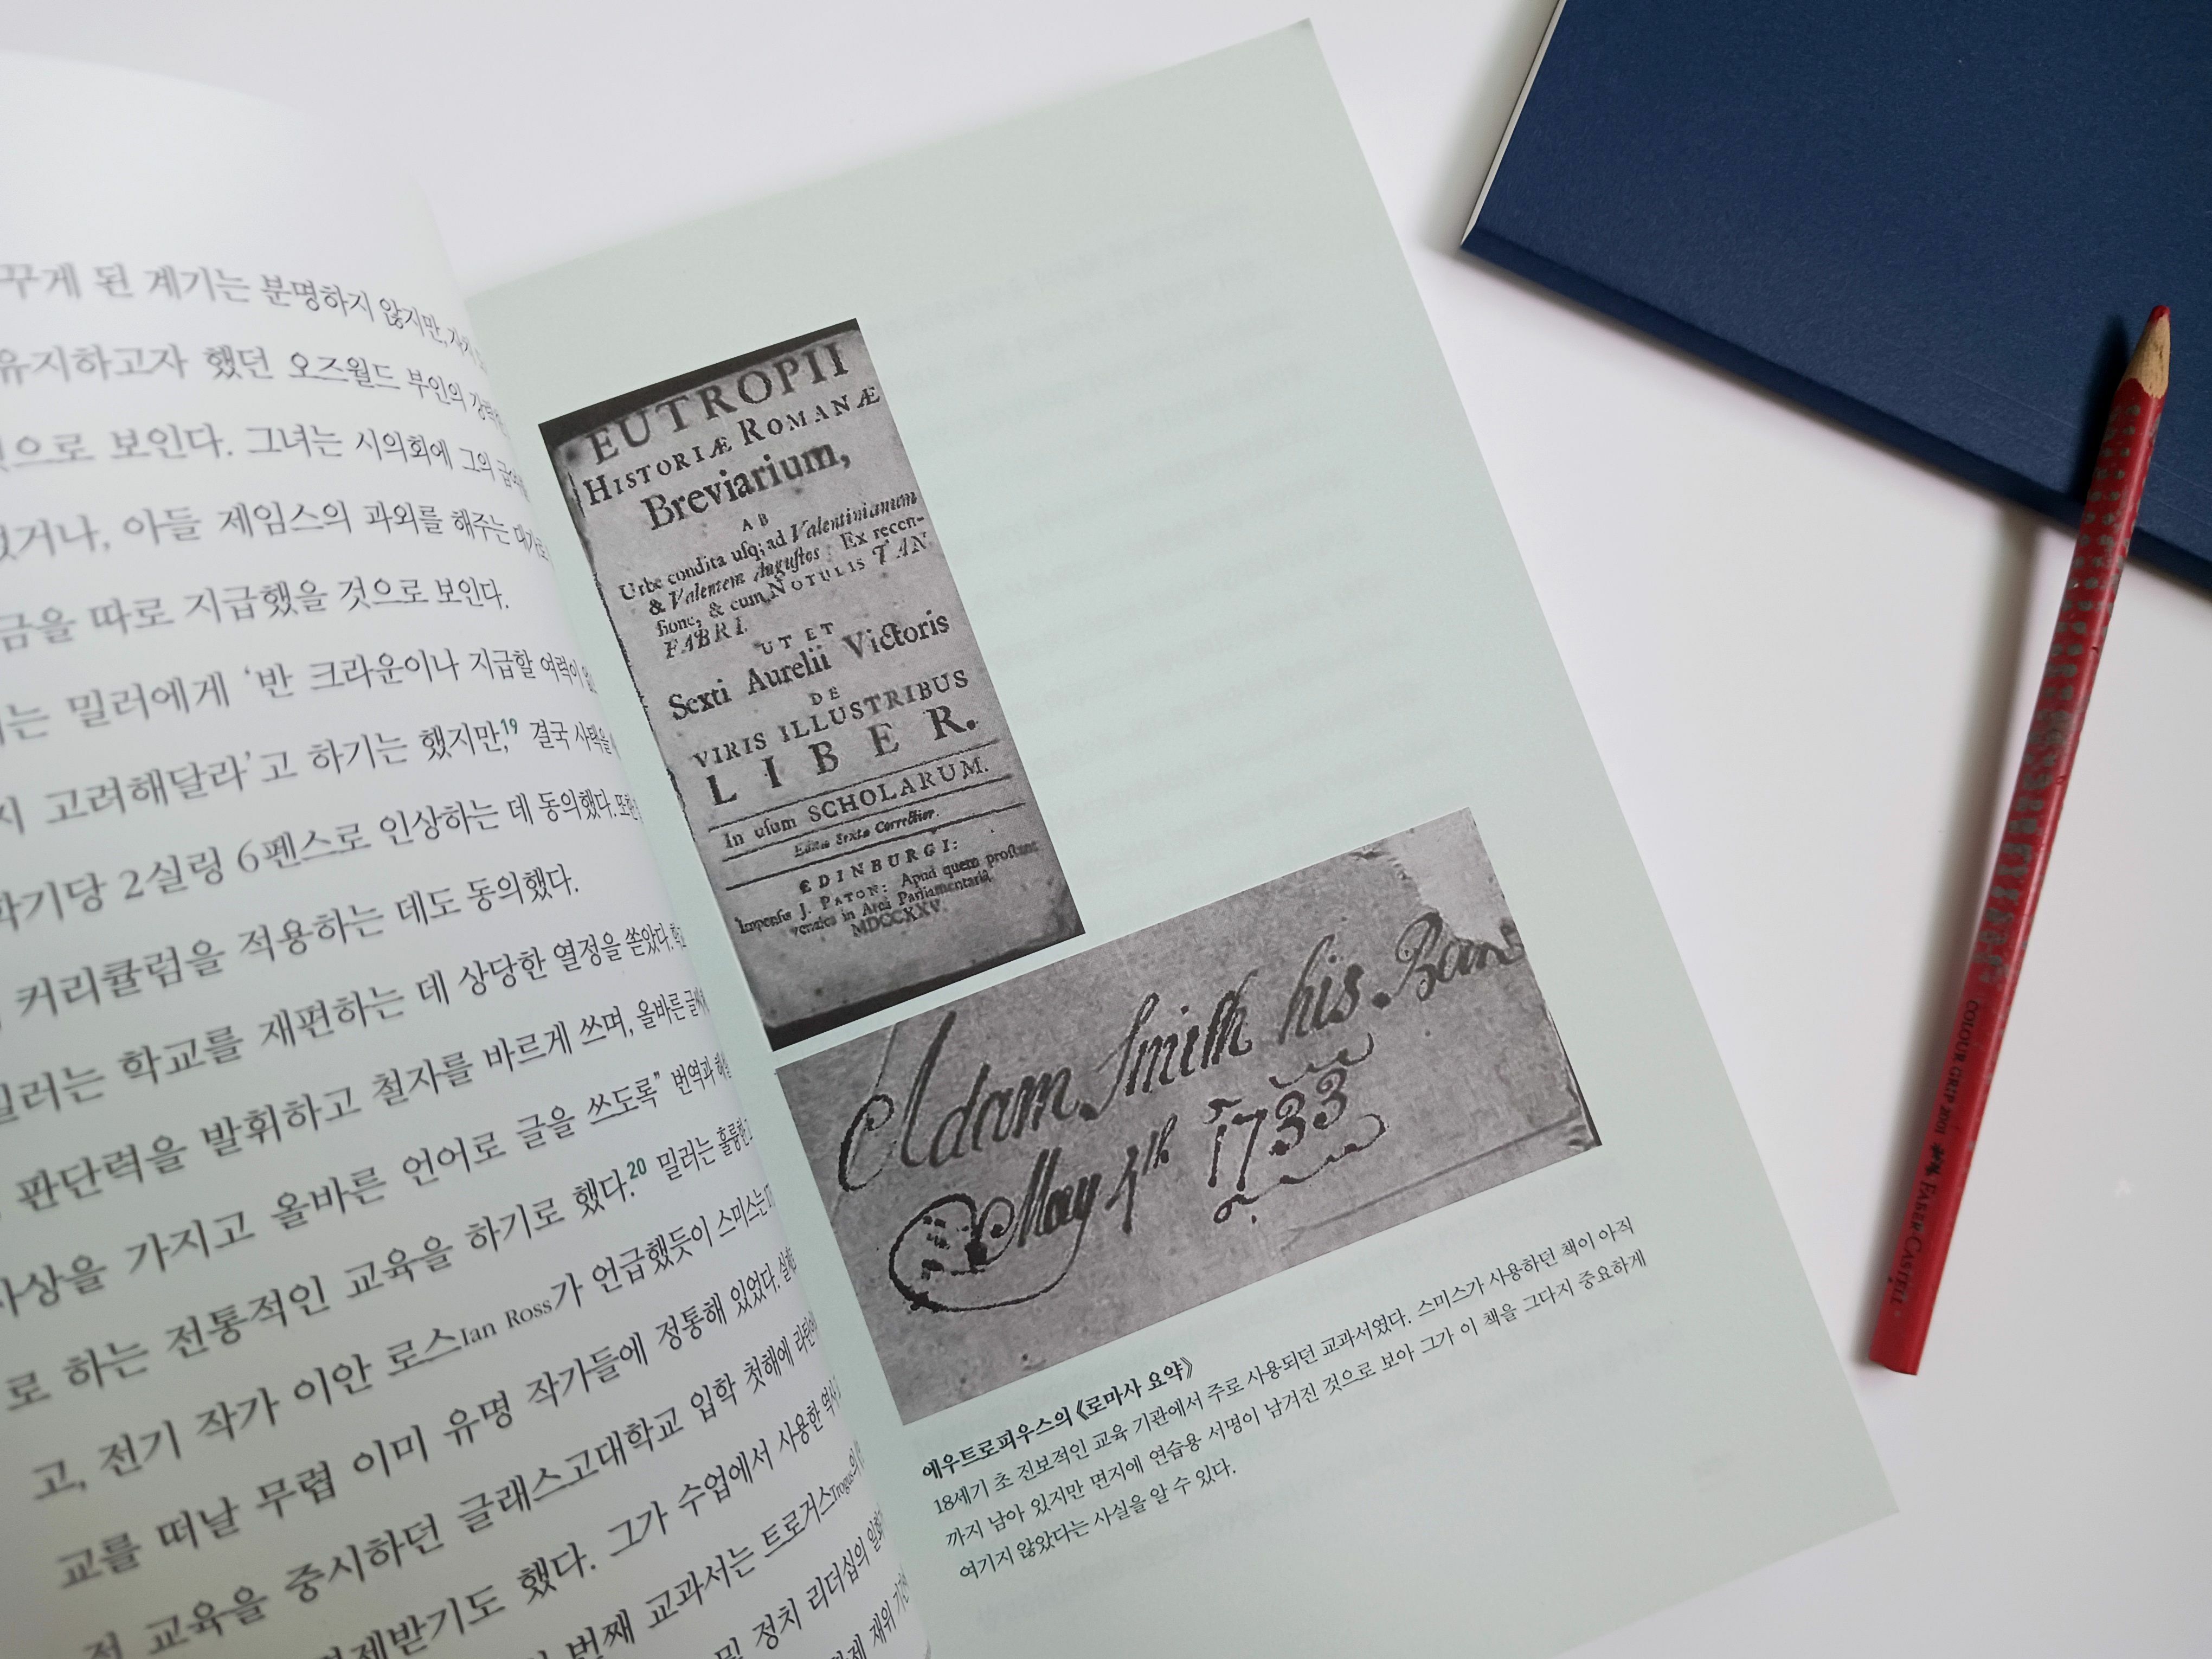 꾸게 된 계기는 분명하지 않지만,
유지하고자 했던 오즈월드 부인의
것으로 보인다. 그녀는 시의회에 그의
아들 제임스의 과외를 해주는
따로 지급했을 것으로 보인다.
밀러에게 ‘반 크라운이나 지급할 여력이
고려해달라’고 하기는 했지만,19 결국 사택을
학기당 2실링 6펜스로 인상하는 데 동의했다.
커리큘럼을 적용하는 데도 동의했다.
밀러는 학교를 재편하는 데 상당한 열정을 쏟았다.
판단력을 발휘하고 철자를 바르게 쓰며, 올바른
사상을 가지고 올바른 언어로 글을 쓰도록” 번역과
로 하는 전통적인 교육을 하기로 했다.20 밀러는 훌륭한
고, 전기 작가 이안 로스Ian Ross가 언급했듯이 스미스는
교를 떠날 무렵 이미 유명 작가들에 정통해 있었다.
교육을 중시하던 글래스고대학교 입학 첫해에
했다. 그가 수업에서 사용한
번째 교과서는 트로거스Trogus의
및 정치 리더십의
재위
EUTROPII
HISTORIÆ ROMANÆ
Breviarium,
AB
Urbe condita usq; ad Valentinianum
& Valentem Augustos: Ex recen-
sione, & cum NOTULIS TAN.
FABRI.
UT ET
Sexti Aurelii Victoris
DE
VIRIS ILLUSTRIBUS
LIBER.
In usum SCHOLARUM.
Editio Sexta Correctior.
EDINBURGI:
Impensis J. PATON: Apud quem prostant
venales in Area Parliamentaria,
MDCCXXV.
Adam Smith his Book
May 4th 1733
에우트로피우스의 《로마사 요약》
18세기 초 진보적인 교육 기관에서 주로 사용되던 교과서였다. 스미스가 사용하던 책이 아직
까지 남아 있지만 면지에 연습용 서명이 남겨진 것으로 보아 그가 이 책을 그다지 중요하게
여기지 않았다는 사실을 알 수 있다.
COLOUR GRIP 2001 FABER-CASTELL